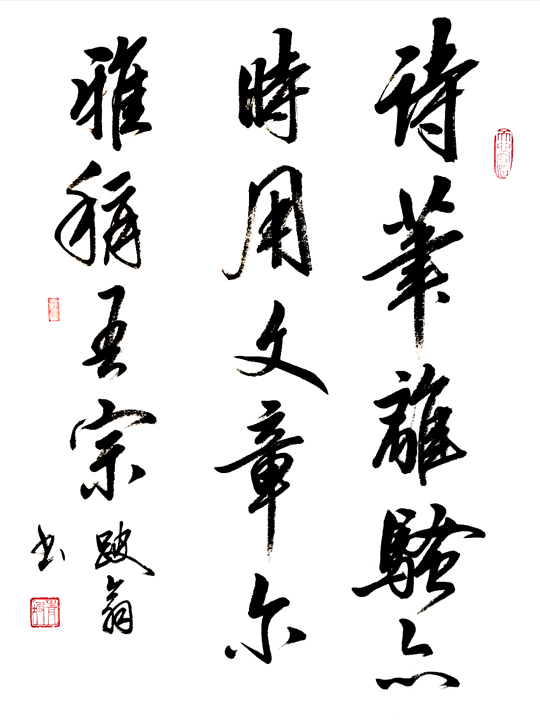 詩筆離騷亦
時用文章尔
雅稱吾宗
跛翁
书